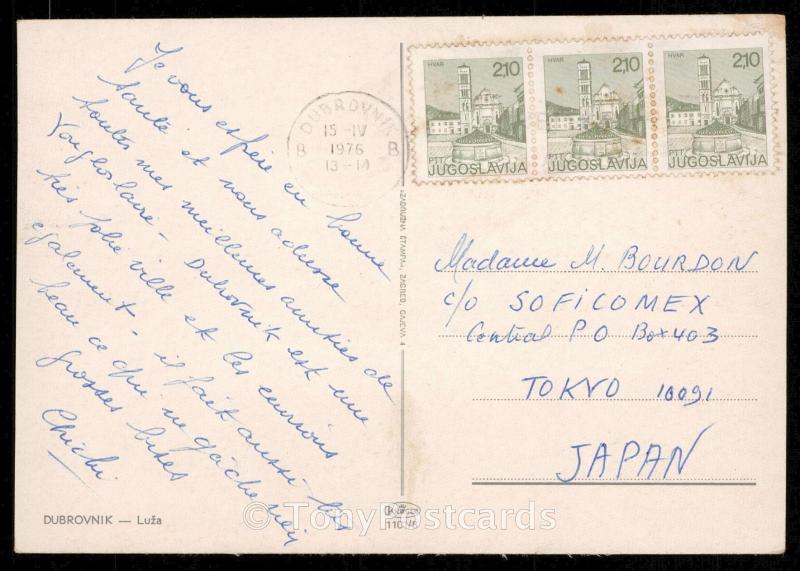 Je vous espère en bonne
santé et vous adresse
toutes mes meilleures amitiés de
Yougoslavie - Dubrovnik est une
très jolie ville et les environs
également - il fait aussi très
beau ce qui ne gâche rien
grosses bises
Chichi
DUBROVNIK — Luža
DUBROVNIK
15-IV
1976
13-14
B B
»ZADRUŽNA ŠTAMPA«, ZAGREB, GAJEVA 4
HVAR 2,10
PTT
JUGOSLAVIJA
HVAR 2,10
PTT
JUGOSLAVIJA
HVAR 2,10
PTT
JUGOSLAVIJA
Madame M. BOURDON
c/o SOFICOMEX
Central P O Box 403
TOKYO 10091
JAPAN
© TonyPostcards